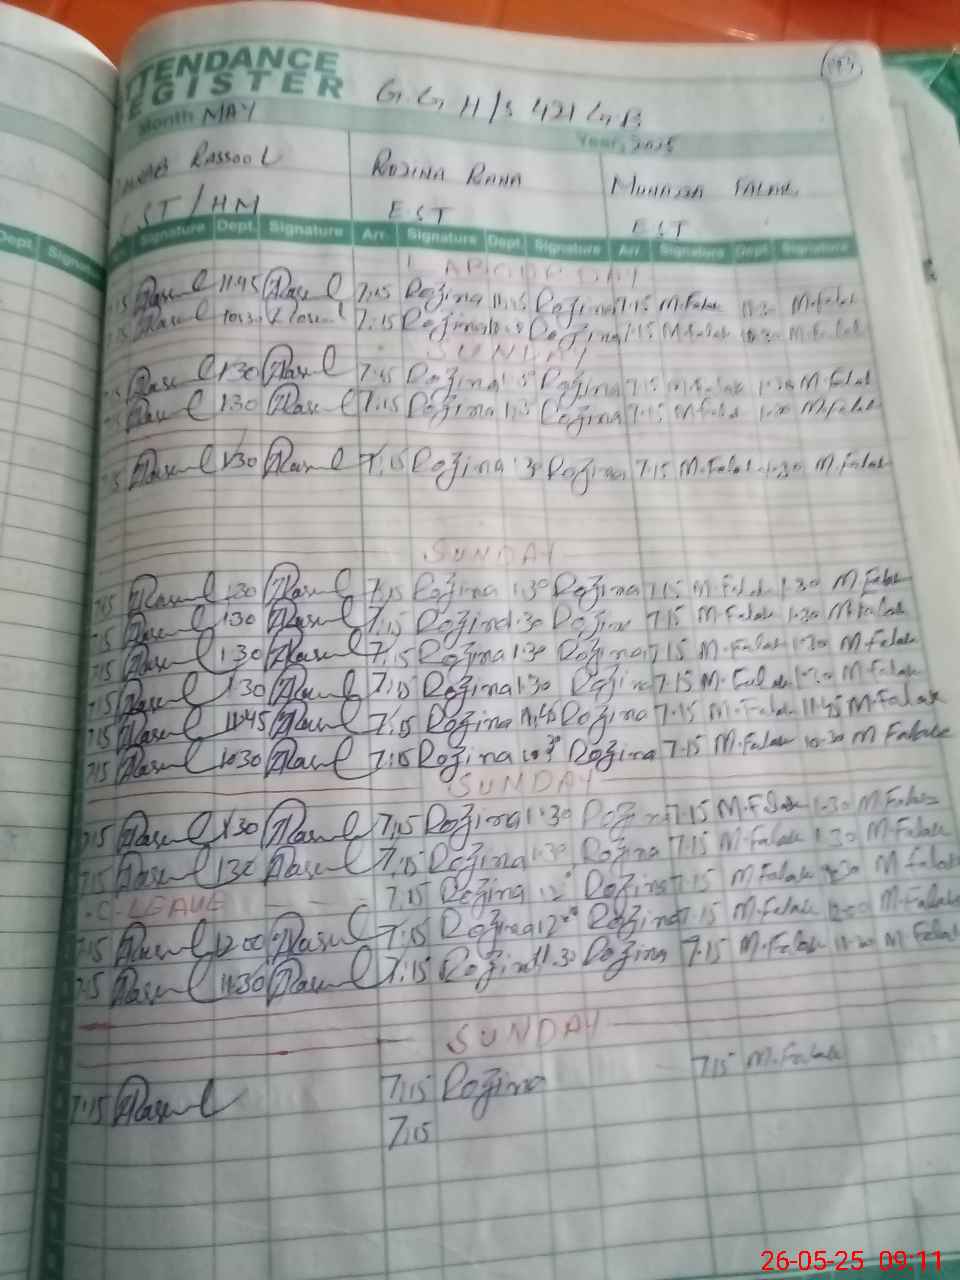 ATTENDANCE
REGISTER
G.G H/S 421 G.B
Month MAY
Year, 2025
RASSOOL ROZINA RANA FALAK
EST/HM EST EST
Signature Dept. Signature Arr. Signature Dept. Signature Arr Signature Dept Signature
Dept. Signature
LABOUR DAY
Rasool 11:45 Rasool 7:15 Rozina Rozina 7:15 M.Falak M.Falak
Rasool 10:30 7:15 Rozina Rozina 7:15 M.Falak 10:30 M.Falak
SUNDAY
Rasool 1:30 Rasool 7:15 Rozina Rozina 7:15 M.Falak 1:30 M.Falak
Rasool 1:30 Rasool 7:15 Rozina Rozina 7:15 M.Falak 1:30 M.Falak
Rasool 1:30 Rasool 7:15 Rozina 1:30 Rozina 7:15 M.Falak 1:30 M.Falak
SUNDAY
7:15 Rasool 1:30 Rasool 7:15 Rozina 1:30 Rozina 7:15 M.Falak 1:30 M.Falak
7:15 Rasool 1:30 Rasool 7:15 Rozina 1:30 Rozina 7:15 M.Falak 1:30 M.Falak
7:15 Rasool 1:30 Rasool 7:15 Rozina 1:30 Rozina 7:15 M.Falak 1:30 M.Falak
7:15 Rasool 1:30 Rasool 7:15 Rozina 1:30 Rozina 7:15 M.Falak 1:30 M.Falak
7:15 Rasool 11:45 Rasool 7:15 Rozina 11:45 Rozina 7:15 M.Falak 11:45 M.Falak
7:15 Rasool 10:30 Rasool 7:15 Rozina 10:30 Rozina 7:15 M.Falak 10:30 M Falak
SUNDAY
7:15 Rasool 1:30 Rasool 7:15 Rozina 1:30 Rozina 7:15 M.Falak 1:30 M.Falak
7:15 Rasool 1:30 Rasool 7:15 Rozina 1:30 Rozina 7:15 M.Falak 1:30 M.Falak
C-LEAVE 7:15 Rozina Rozina 7:15 M Falak M.Falak
7:15 Rasool 12:00 Rasool 7:15 Rozina 12:00 Rozina 7:15 M.Falak 12:00 M.Falak
7:15 Rasool 11:30 Rasool 7:15 Rozina 11:30 Rozina 7:15 M.Falak 11:30 M Falak
SUNDAY
7:15 Rasool 7:15 Rozina 7:15 M.Falak
7:15
26-05-25 09:11